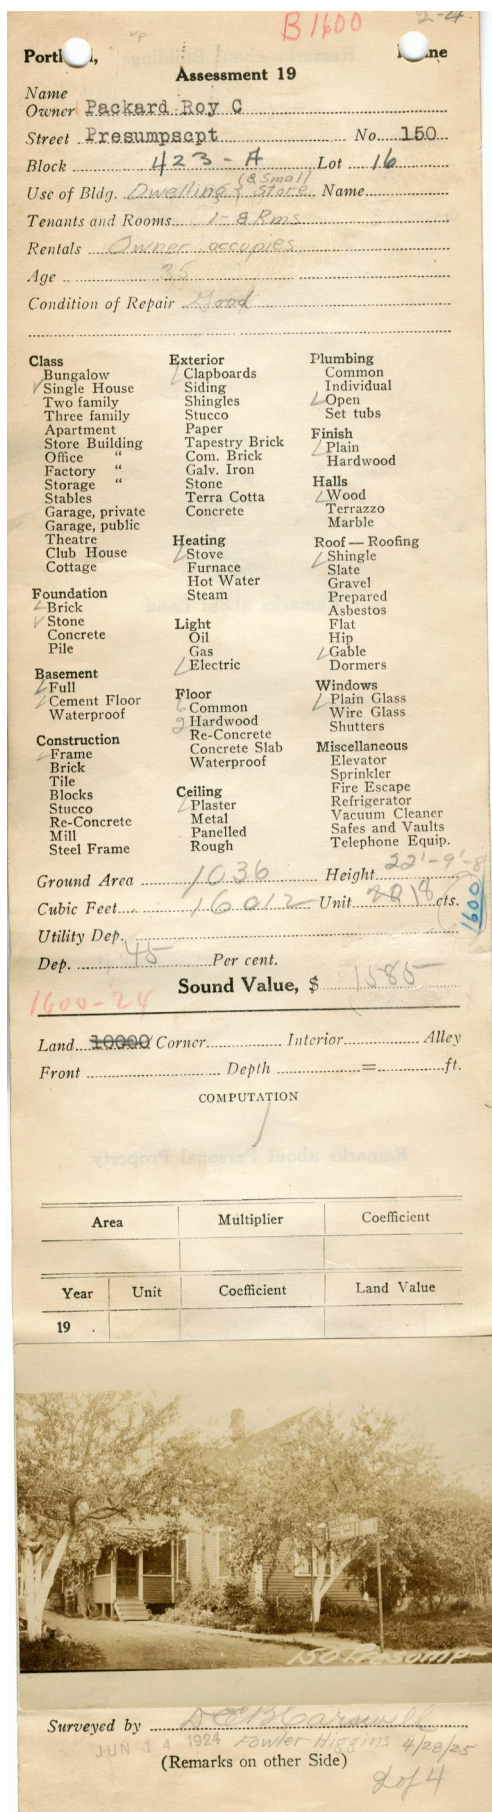 B1600
2-4
Portl d, ne
Assessment 19
Name
Owner Packard Roy C
Street Presumpscpt No. 150
Block 423-A Lot 16
(& Small)
Use of Bldg. Dwelling & Store Name
Tenants and Rooms 1-8 Rms
Rentals Owner occupies
Age 35
Condition of Repair Good
Class
Bungalow
Single House
Two family
Three family
Apartment
Store Building
Office "
Factory "
Storage "
Stables
Garage, private
Garage, public
Theatre
Club House
Cottage
Foundation
Brick
Stone
Concrete
Pile
Basement
Full
Cement Floor
Waterproof
Construction
Frame
Brick
Tile
Blocks
Stucco
Re-Concrete
Mill
Steel Frame
Exterior
Clapboards
Siding
Shingles
Stucco
Paper
Tapestry Brick
Com. Brick
Galv. Iron
Stone
Terra Cotta
Concrete
Heating
Stove
Furnace
Hot Water
Steam
Light
Oil
Gas
Electric
Floor
6 Common
2 Hardwood
Re-Concrete
Concrete Slab
Waterproof
Ceiling
Plaster
Metal
Panelled
Rough
Plumbing
Common
Individual
Open
Set tubs
Finish
Plain
Hardwood
Halls
Wood
Terrazzo
Marble
Roof — Roofing
Shingle
Slate
Gravel
Prepared
Asbestos
Flat
Hip
Gable
Dormers
Windows
Plain Glass
Wire Glass
Shutters
Miscellaneous
Elevator
Sprinkler
Fire Escape
Refrigerator
Vacuum Cleaner
Safes and Vaults
Telephone Equip.
Ground Area 1036 Height 22'-9'-8
Cubic Feet 16012 Unit 20 18 cts.
1600
Utility Dep.
Dep. 45 Per cent.
Sound Value, $ 1585
1600-24
Land 10000 Corner Interior Alley
Front Depth = ft.
COMPUTATION
Area Multiplier Coefficient
Year Unit Coefficient Land Value
19 .
150 Presump
Surveyed by
JUN 14 1924 Fowler Higgins 4/28/25
(Remarks on other Side)
2 of 4